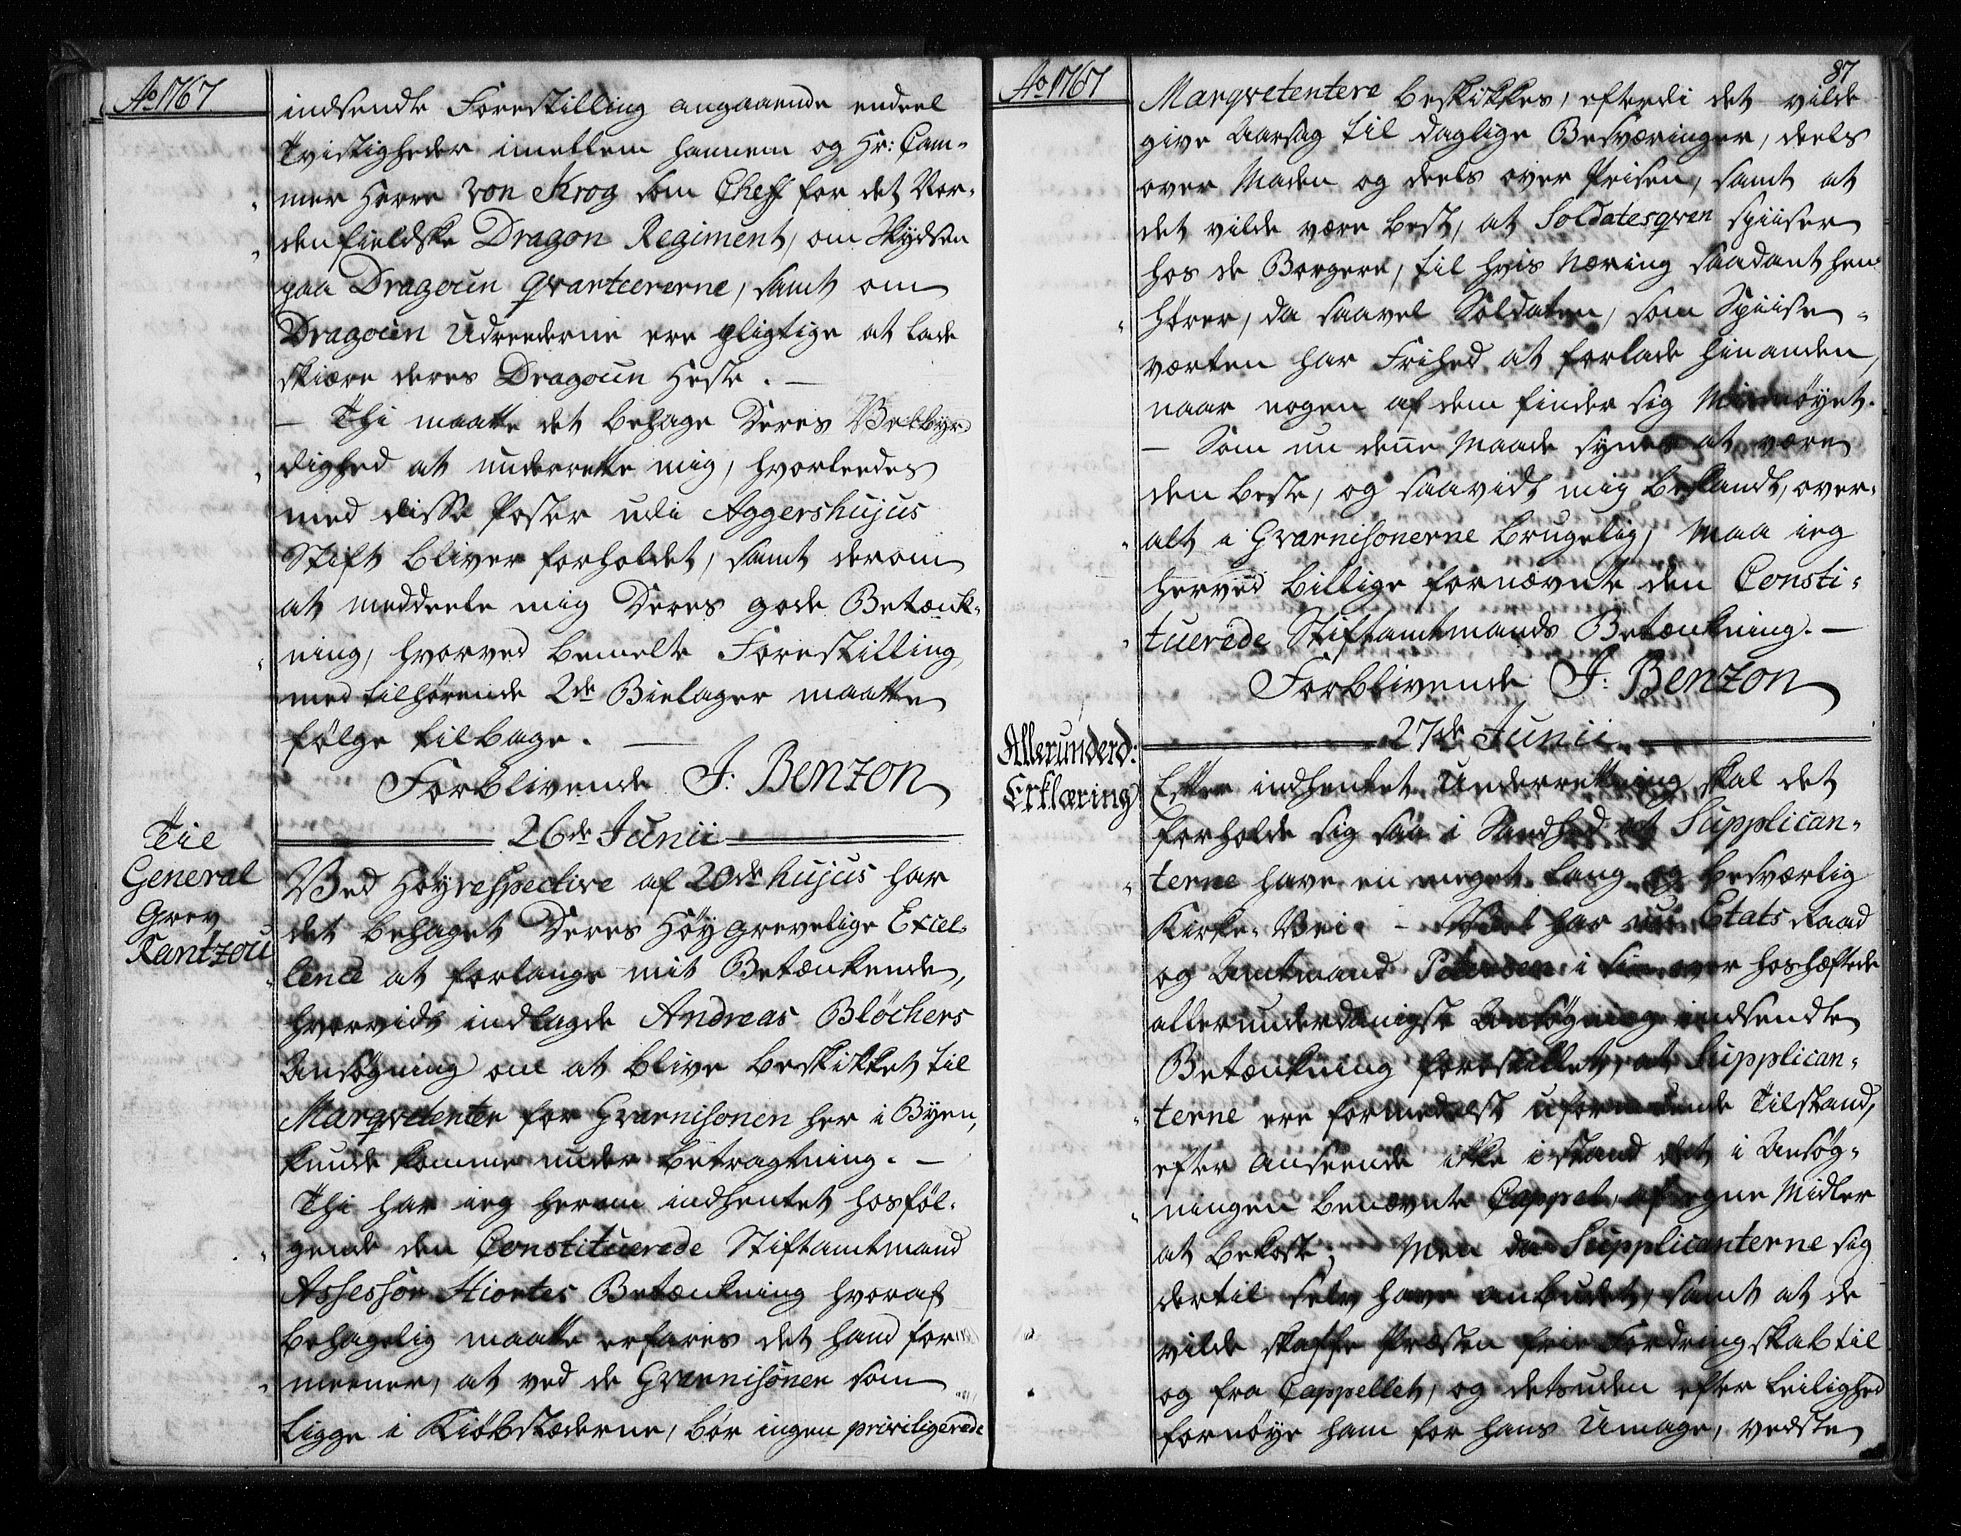 Ao 1767.
indsendte Forestilling angaaende endeel
Tvistigheder imellem hannem og Hr: Cam-
mer Herre von Krog som Cheff for det Nor-
denfieldske Dragon Regiment, om Skydsen
paa Dragoun Qvarteererne, samt om
Dragoun Udreederne ere pligtige at lade
skiære deres Dragoun Heste. —
— Thi maatte det behage Deres Velbyr-
dighed at underrette mig, hvorleedes
med disse Poster udi Aggershujus
Stift bliver forholdet, samt derom
at meddeele mig Deres gode Betænk-
ning, hvorved bemelte Forestilling
med tilhørende 2de Bielager maatte
følge tilbage. —
Forblivende J. Benzon
26de Junii
Til
General
Grev
Rantzou
Ved Høyrespective af 20de hujus har
det behaget Deres Høygrevelige Excel-
lence at forlange mit Betænkende,
hvorvidt indlagde Andreas Bløchers
Ansøgning om at blive beskikket til
Marqvetenter for Gvarnisonen her i Byen,
kunde komme under Betragtning. —
Thi har ieg herom indhentet hosføl-
gende den Constituerede Stiftamtmand
Assessor Hiortes Betænkning hvoraf
behagelig maatte erfares det hand for-
meener, at ved de Gvarnisoner som
ligge i Kiøbstæderne, bør ingen priviligerede
Ao 1767
87
Marqvetentere beskikkes, efterdi det vilde
give Aarsag til daglige Besværinger, deels
over Maden og deels over Prisen, samt at
det vilde være best, at Soldatesqven spiiser
hos de Borgere, til hvis Næring saadant hen-
hører, da saavel Soldaten, som Spiise-
værten har Frihed at forlade hinanden,
naar nogen af dem finder sig Misnøyet.
— Som nu denne Maade synes at være
den beste, og saavidt mig bekandt, over-
alt i Gvarnisonerne brugelig, maa ieg
herved billige fornævnte den Consti-
tuerede Stiftamtmands Betænkning. —
Forblivende J. Benzon
27de Junii
Allerunderd:
Erklæring
Efter indhentet Underretning skal det
forholde sig saa i Sandhed at Supplican-
terne have en meget lang og besværlig
Kirke-Vei. — Vel har nu Etats Raad
og Amtmand Petersen i sin over hoshæftede
allerunderdanigst Ansøgning indsendte
Betænkning forestillet, at Supplican-
terne ere formedelst uformuende Tilstand,
efter Anseende ikke i stand det i Ansøg-
ningen benævnte Cappel, af egne Midler
at bekoste; Men da Supplicanterne sig
dertil selv have anbudet, samt at de
vilde skaffe Præsten frie Fordringskab til
og fra Cappellet, og desuden efter Leilighed
fornøye ham for hans Umage, vedste